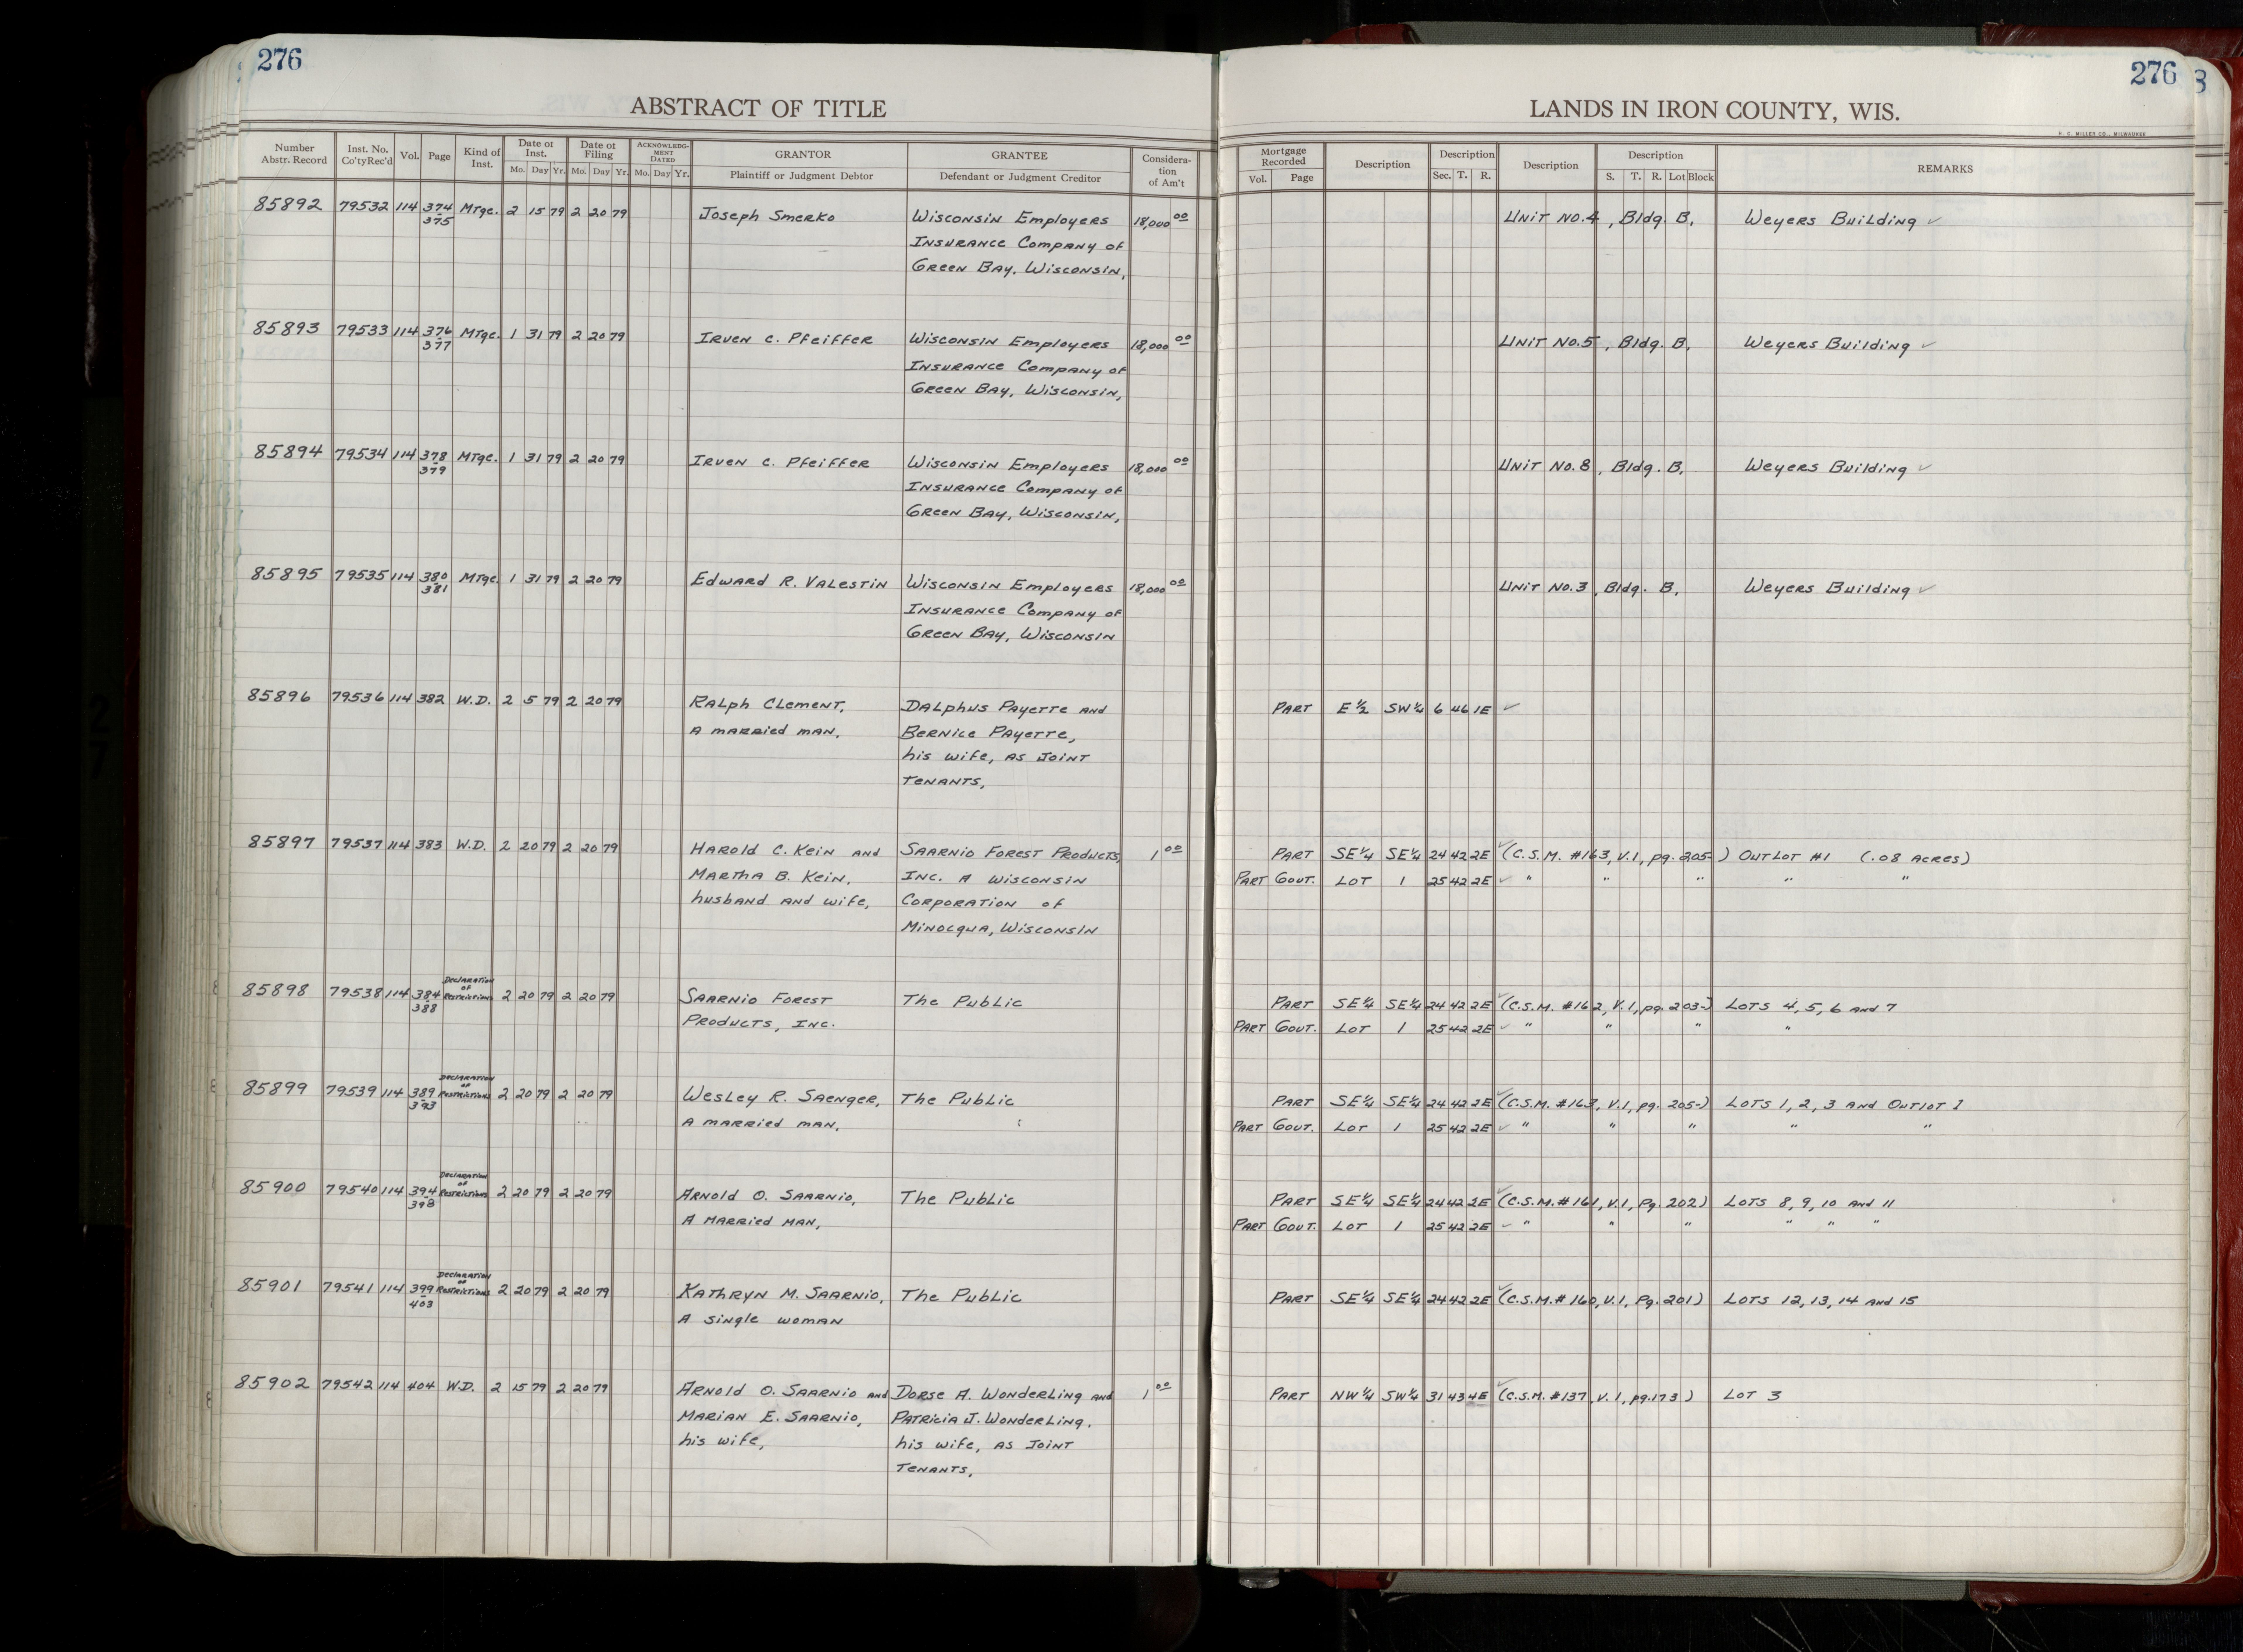 276
ABSTRACT OF TITLE
Number Abstr. Record
Inst. No. Co'ty Rec'd
Vol.
Page
Kind of Inst.
Date of Inst.
Mo. Day Yr.
Date of Filing
Mo. Day Yr.
ACKNOWLEDGMENT DATED
Mo. Day Yr.
GRANTOR
Plaintiff or Judgment Debtor
GRANTEE
Defendant or Judgment Creditor
Consideration of Am't
276
LANDS IN IRON COUNTY, WIS.
H. C. MILLER CO., MILWAUKEE
Mortgage Recorded
Vol. Page
Description
Description
Sec. T. R.
Description
Description
S. T. R. Lot Block
REMARKS
85892 79532 114 374 Mtge. 2 15 79 2 20 79 Joseph Smerko Wisconsin Employers 18,000 00 Unit No. 4, Bldg. B, Weyers Building ✓
375 Insurance Company of
Green Bay, Wisconsin,
85893 79533 114 376 Mtge. 1 31 79 2 20 79 Irven C. Pfeiffer Wisconsin Employers 18,000 00 Unit No. 5, Bldg. B, Weyers Building ✓
377 Insurance Company of
Green Bay, Wisconsin,
85894 79534 114 378 Mtge. 1 31 79 2 20 79 Irven C. Pfeiffer Wisconsin Employers 18,000 00 Unit No. 8, Bldg. B, Weyers Building ✓
379 Insurance Company of
Green Bay, Wisconsin,
85895 79535 114 380 Mtge. 1 31 79 2 20 79 Edward R. Valestin Wisconsin Employers 18,000 00 Unit No. 3, Bldg. B, Weyers Building ✓
381 Insurance Company of
Green Bay, Wisconsin
85896 79536 114 382 W.D. 2 5 79 2 20 79 Ralph Clement, Dalphus Payette and Part E ½ SW ¼ 6 46 1E ✓
a married man, Bernice Payette,
his wife, as joint
tenants,
85897 79537 114 383 W.D. 2 20 79 2 20 79 Harold C. Kein and Saarnio Forest Products, 1 00 Part SE ¼ SE ¼ 24 42 2E ✓ (C.S.M. #163, V.1, pg. 205-) Outlot #1 (.08 acres)
Martha B. Kein, Inc. a Wisconsin Part Govt. Lot 1 25 42 2E ✓ " " " " "
husband and wife, Corporation of
Minocqua, Wisconsin
85898 79538 114 384 Declaration of Restrictions 2 20 79 2 20 79 Saarnio Forest The Public Part SE ¼ SE ¼ 24 42 2E ✓ (C.S.M. #162, V.1, pg. 203-) Lots 4, 5, 6 and 7
388 Products, Inc. Part Govt. Lot 1 25 42 2E ✓ " " " "
85899 79539 114 389 Declaration of Restrictions 2 20 79 2 20 79 Wesley R. Saenger, The Public Part SE ¼ SE ¼ 24 42 2E ✓ (C.S.M. #163, V.1, pg. 205-) Lots 1, 2, 3 and Outlot 1
393 a married man, Part Govt. Lot 1 25 42 2E ✓ " " " " "
85900 79540 114 394 Declaration of Restrictions 2 20 79 2 20 79 Arnold O. Saarnio, The Public Part SE ¼ SE ¼ 24 42 2E ✓ (C.S.M. #161, V.1, Pg. 202) Lots 8, 9, 10 and 11
398 a married man, Part Govt. Lot 1 25 42 2E ✓ " " " " " "
85901 79541 114 399 Declaration of Restrictions 2 20 79 2 20 79 Kathryn M. Saarnio, The Public Part SE ¼ SE ¼ 24 42 2E ✓ (C.S.M. #160, V.1, Pg. 201) Lots 12, 13, 14 and 15
403 a single woman
85902 79542 114 404 W.D. 2 15 79 2 20 79 Arnold O. Saarnio and Dorse A. Wonderling and 1 00 Part NW ¼ SW ¼ 31 43 4E ✓ (C.S.M. #137, V.1, pg. 173) Lot 3
Marian E. Saarnio, Patricia J. Wonderling,
his wife, his wife, as joint
tenants,